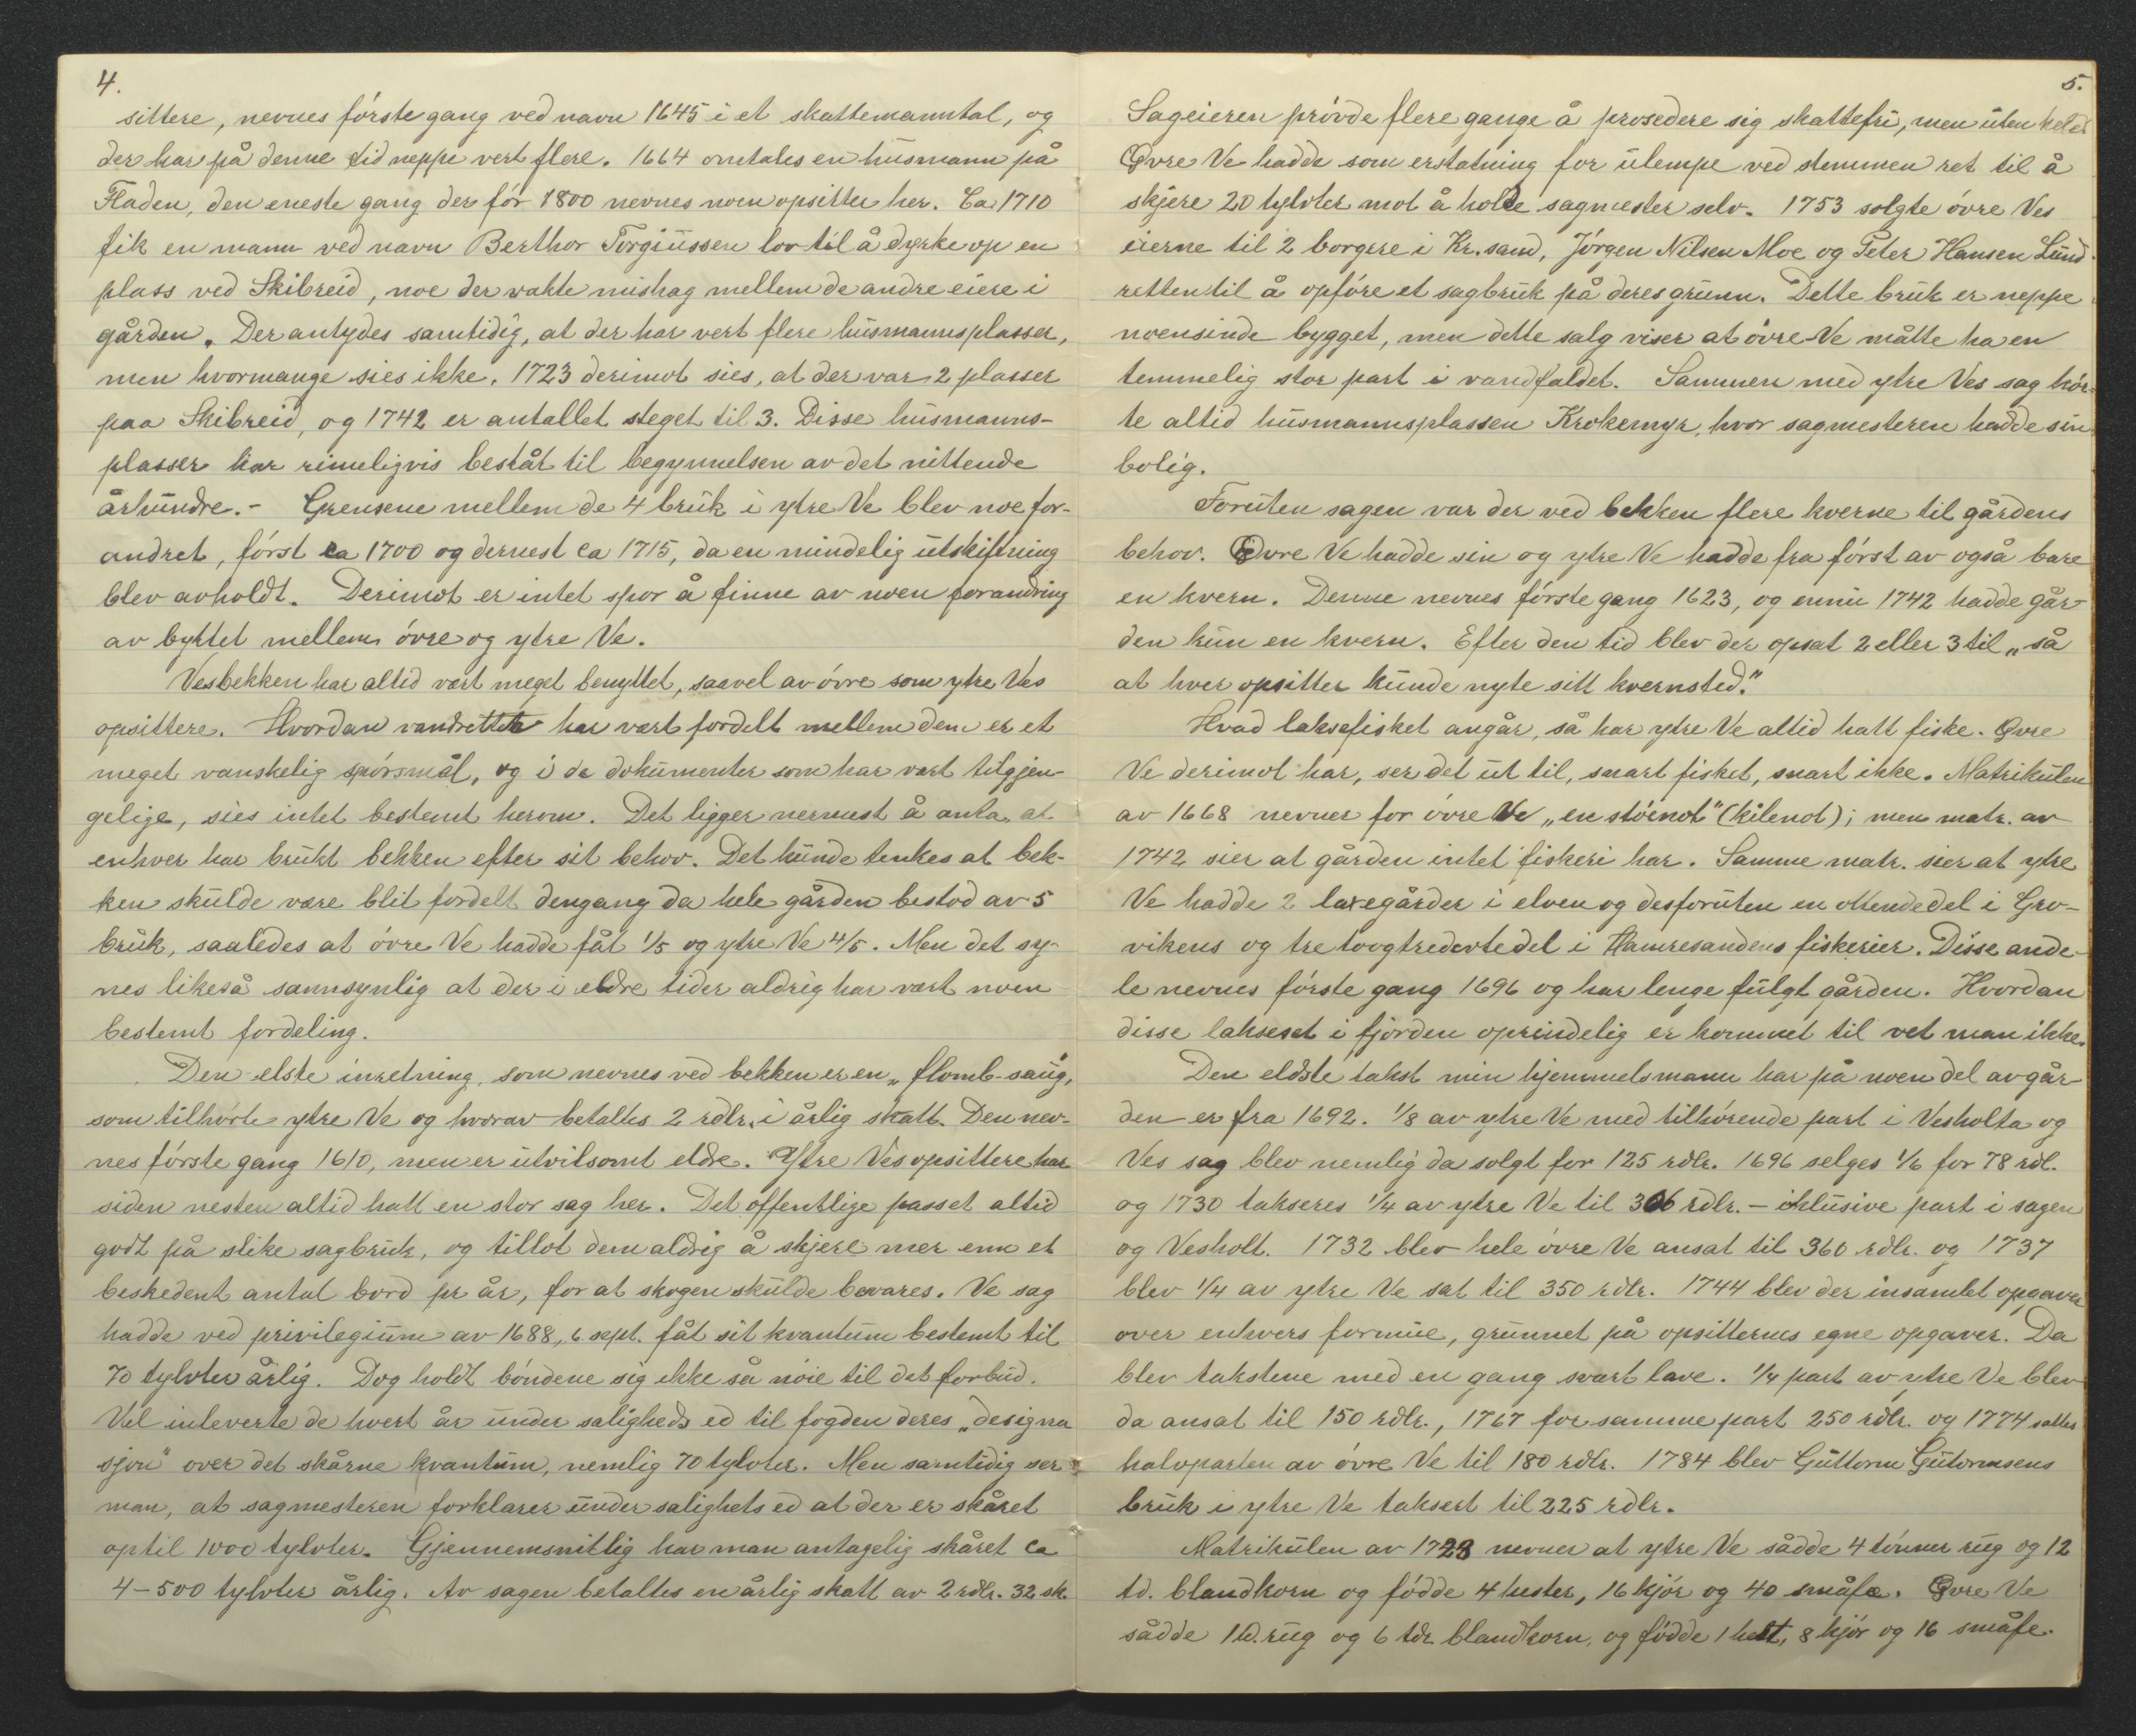 4.
sittere, nevnes förste gang ved navn 1645 i et skattemanntal, og
der har på denne tid neppe vert flere. 1664 omtales en husmann på
Fladen, den eneste gang der för 1800 nevnes noen opsitter her. Ca 1710
fik en mann ved navn Berthor Torgiussen lov til å dyrke op en
plass ved Skibreid, noe der vakte mishag mellem de andre eiere i
gården. Der antydes samtidig, at der har vert flere husmannsplasser,
men hvormange sies ikke. 1723 derimot sies, at der var 2 plasser
paa Skibreid, og 1742 er antallet steget til 3. Disse husmanns-
plasser har rimeligvis beståt til begynnelsen av det nittende
århundre.- Grensene mellem de 4 bruk i ytre Ve blev noe for-
andret, först ca 1700 og dernest ca 1715, da en mindelig utskiftning
blev avholdt. Derimot er intet spor å finne av noen forandring
av byttet mellem övre og ytre Ve.
Vesbekken har altid vært meget benyttet, saavel av övre som ytre Ves
opsittere. Hvordan vandrettet har vært fordelt mellem dem er et
meget vanskelig spörsmål, og i de dokumenter som har vært tilgjen-
gelige, sies intet bestemt herom. Det ligger nermest å anta, at
enhver har brukt bekken efter sit behov. Det kunde tenkes at bek-
ken skulde være blit fordelt dengang da hele gården bestod av 5
bruk, saaledes at övre Ve hadde fåt 1/5 og ytre Ve 4/5. Men det sy-
nes likeså sannsynlig at der i eldre tider aldrig har vært noen
bestemt fordeling.
Den elste inretning, som nevnes ved bekken er en „flomb-saug,
som tilhörte ytre Ve og hvorav betaltes 2 rdlr. i årlig skatt. Den nev-
nes förste gang 1610, men er utvilsomt eldre. Ytre Ves opsittere har
siden nesten altid hatt en stor sag her. Det offentlige passet altid
godt på slike sagbruk, og tillot dem aldrig å skjere mer enn et
beskedent antal bord pr år, for at skogen skulde bevares. Ve sag
hadde ved privilegium av 1688, 6 sept. fåt sit kvantum bestemt til
70 tylvter årlig. Dog holdt böndene sig ikke så nöie til det forbud.
Vel inleverte de hvert år under saligheds ed til fogden deres „designa
sjon" over det skårne kvantum, nemlig 70 tylvter. Men samtidig ser
man, at sagmesteren forklarer under salighets ed at der er skåret
optil 1000 tylvter. Gjennemsnitlig har man antagelig skåret ca
4-500 tylvter årlig. Av sagen betaltes en årlig skatt av 2 rdlr. 32 sk.
5.
Sageieren prövde flere gange å prosedere sig skattefri, men uten held
Øvre Ve hadde som erstatning for ulempe ved stemmen ret til å
skjere 20 tylvter mot å holde sagmester selv. 1753 solgte övre Ves
eierne til 2 borgere i Kr.sand, Jörgen Nilsen Moe og Peter Hansen Lund
retten til å opföre et sagbruk på deres grunn. Dette bruk er neppe
noensinde bygget, men dette salg viser at övre Ve måtte ha en
temmelig stor part i vandfaldet. Sammen med ytre Ves sag hör-
te altid husmannsplassen Krokemyr, hvor sagmesteren hadde sin
bolig.
Foruten sagen var der ved bekken flere kverne til gårdens
behov. Øvre Ve hadde sin og ytre Ve hadde fra först av også bare
en kvern. Denne nevnes förste gang 1623, og ennu 1742 hadde går-
den kun en kvern. Efter den tid blev der opsat 2 eller 3 til „så
at hver opsitter kunde nyte sitt kvernsted."
Hvad laksefisket angår, så har ytre Ve altid hatt fiske. Øvre
Ve derimot har, ser det ut til, snart fisket, snart ikke. Matrikulen
av 1668 nevner for övre Ve „en stöenot" (kilenot); men matr. av
1742 sier at gården intet fiskeri har. Samme matr. sier at ytre
Ve hadde 2 laxegårder i elven og desforuten en ottendedel i Gro-
vikens og tre toogtredevtedel i Hamresandens fiskerier. Disse ande-
le nevnes förste gang 1696 og har lenge fulgt gården. Hvordan
disse lakseset i fjorden oprindelig er kommet til vet man ikke.
Den eldste takst min hjemmelsmann har på noen del av går-
den er fra 1692. 1/8 av ytre Ve med tilhörende part i Vesholta og
Ves sag blev nemlig da solgt for 125 rdlr. 1696 selges 1/6 for 78 rdl.
og 1730 takseres 1/4 av ytre Ve til 306 rdlr. – iklusive part i sagen
og Vesholt. 1732 blev hele övre Ve ansat til 360 rdlr. og 1737
blev 1/4 av ytre Ve sat til 350 rdlr. 1744 blev der insamlet opgaver
over enhvers formue, grunnet på opsitternes egne opgaver. Da
blev takstene med en gang svært lave. 1/4 part av ytre Ve blev
da ansat til 150 rdlr., 1767 for samme part 250 rdlr. og 1774 sattes
halvparten av övre Ve til 180 rdlr. 1784 blev Guttorm Gutormsens
bruk i ytre Ve taksert til 225 rdlr.
Matrikulen av 1723 nevner at ytre Ve sådde 4 tönner rug og 12
td. blandkorn og födde 4 hester, 16 kjör og 40 småfæ. Øvre Ve
sådde 1 td. rug og 6 tdr. blandkorn, og födde 1 hest, 8 kjör og 16 småfe.